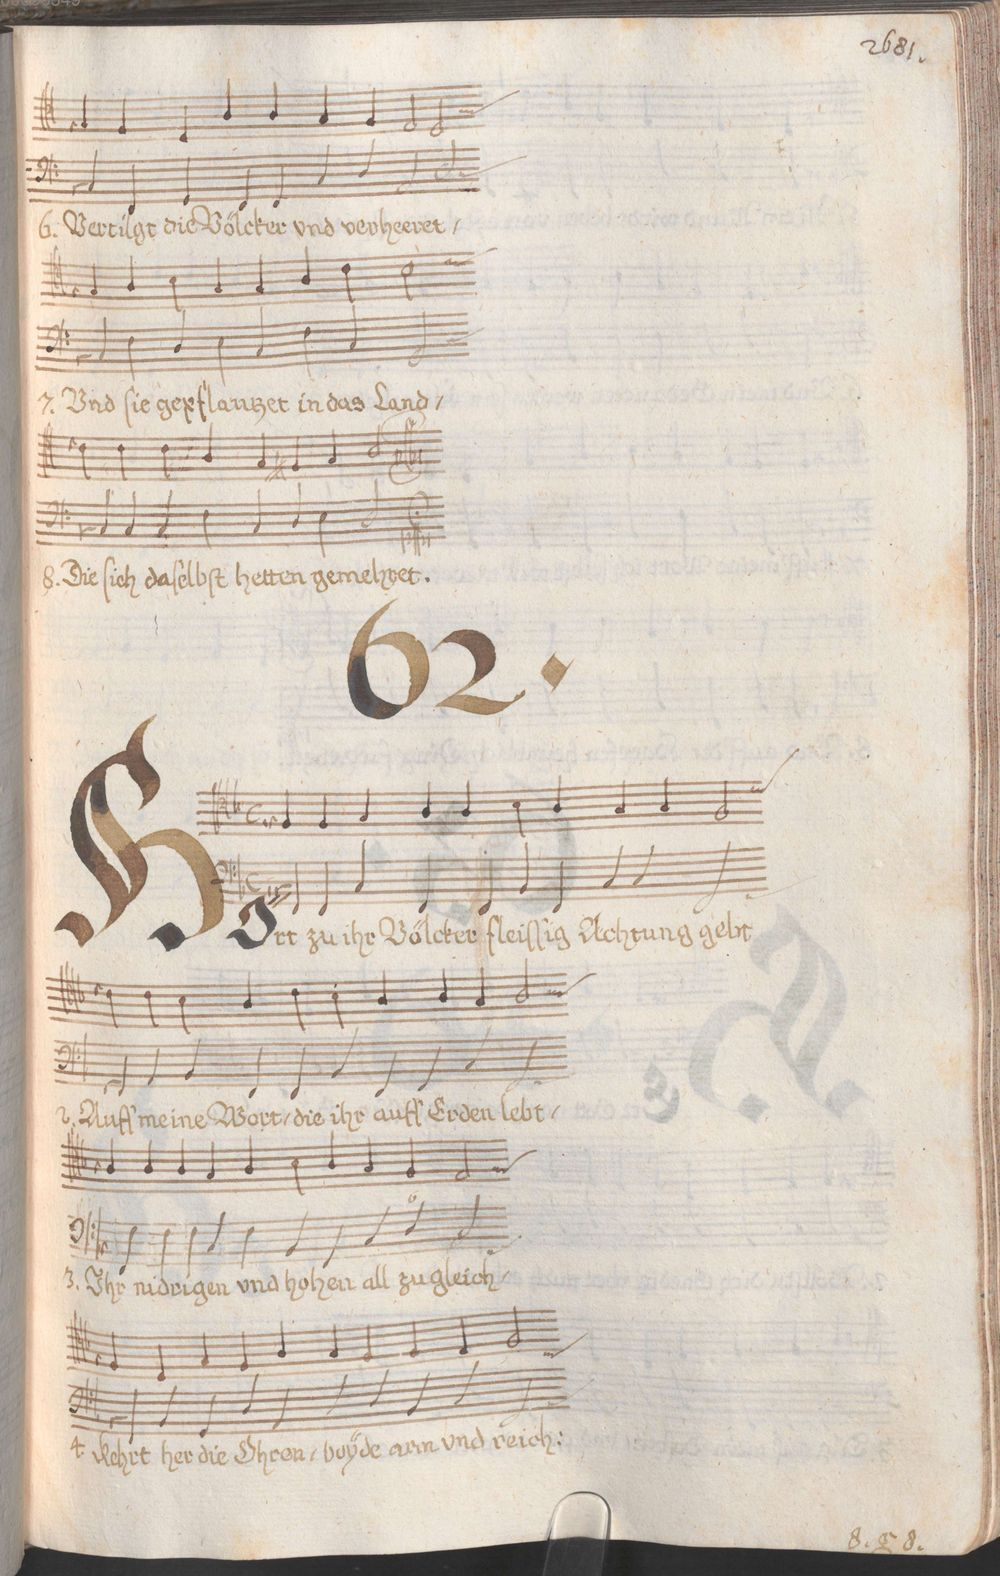 2681.
6. Vertilgt die Völcker vnd verheeret /
7. Vnd sie gepflantzet in das Land /
8. Die sich daselbst hetten gemehret.
62.
HOrt zu ihr Völcker fleissig Achtung gebt
2. Auff meine Wort / die ihr auff Erden lebt /
3. Ihr nidrigen vnd hohen all zu gleich /
4. Kehrt her die Ohren / beyde arm vnd reich: